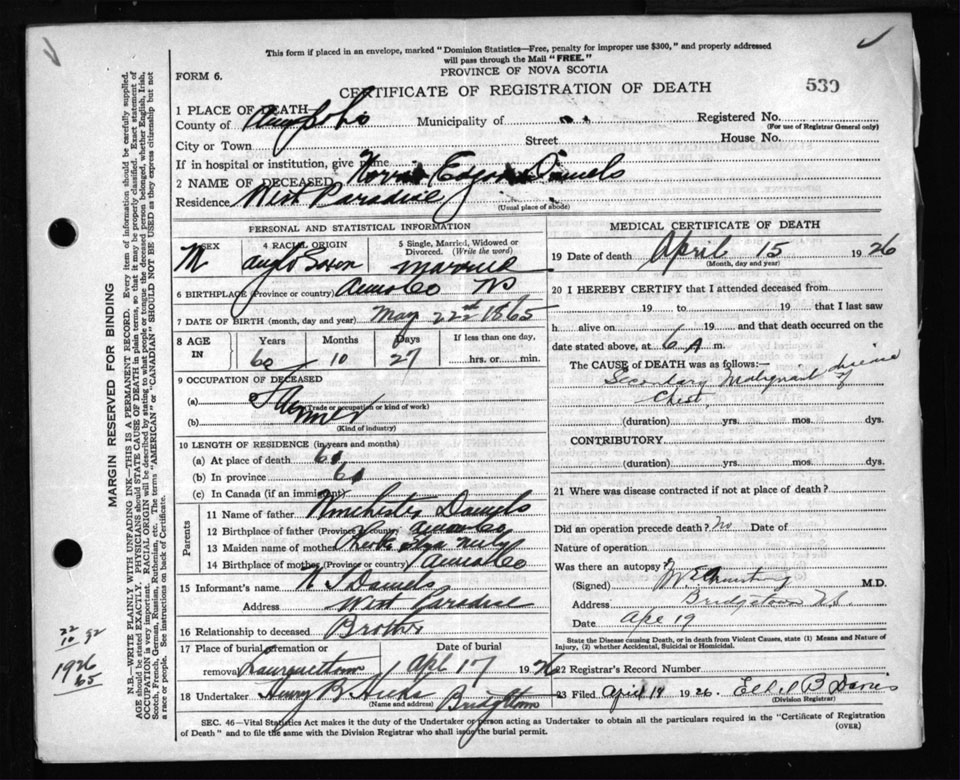 This form if placed in an envelope, marked "Dominion Statistics—Free, penalty for improper use $300," and properly addressed
will pass through the Mail "FREE."
PROVINCE OF NOVA SCOTIA
FORM 6.
CERTIFICATE OF REGISTRATION OF DEATH
539
1 PLACE OF DEATH
County of Municipality of Registered No.
(For use of Registrar General only)
City or Town Street House No.
If in hospital or institution, give name
2 NAME OF DECEASED Edgar Daniels
Residence West Paradise
(Usual place of abode)
PERSONAL AND STATISTICAL INFORMATION
SEX M
4 RACIAL ORIGIN Anglo Saxon
5 Single, Married, Widowed or Divorced. (Write the word) Married
6 BIRTHPLACE (Province or country) NS
7 DATE OF BIRTH (month, day and year) May 22nd 1865
8 AGE IN Years 60 Months 10 Days 27 If less than one day, hrs. or min.
9 OCCUPATION OF DECEASED
(a) Farmer
(Trade or occupation or kind of work)
(b)
(Kind of industry)
10 LENGTH OF RESIDENCE (in years and months)
(a) At place of death 60
(b) In province 60
(c) In Canada (if an immigrant)
Parents
11 Name of father Daniels
12 Birthplace of father (Province or country)
13 Maiden name of mother
14 Birthplace of mother (Province or country)
15 Informant's name Daniels
Address West Paradise
16 Relationship to deceased Brother
17 Place of burial, cremation or removal Date of burial
Apl 17 1926
18 Undertaker Henry B Hicks Bridgetown
(Name and address)
MEDICAL CERTIFICATE OF DEATH
19 Date of death April 15 1926
(Month, day and year)
20 I HEREBY CERTIFY that I attended deceased from
19 to 19 that I last saw
h alive on 19 and that death occurred on the
date stated above, at 6 A m.
The CAUSE of DEATH was as follows:
Secondary Malignant disease of
Chest
(duration) yrs. mos. dys.
CONTRIBUTORY
(duration) yrs. mos. dys.
21 Where was disease contracted if not at place of death?
Did an operation precede death? No Date of
Nature of operation
Was there an autopsy?
(Signed) Armstrong M.D.
Address Bridgetown N.S.
Date Apl 19
State the Disease causing Death, or in death from Violent Causes, state (1) Means and Nature of
Injury, (2) whether Accidental, Suicidal or Homicidal.
22 Registrar's Record Number
23 Filed April 19 1926.
(Division Registrar)
SEC. 46—Vital Statistics Act makes it the duty of the Undertaker or person acting as Undertaker to obtain all the particulars required in the "Certificate of Registration
of Death" and to file the same with the Division Registrar who shall issue the burial permit.
(OVER)
MARGIN RESERVED FOR BINDING
N.B.—WRITE PLAINLY WITH UNFADING INK—THIS IS A PERMANENT RECORD. Every item of information should be carefully supplied.
AGE should be stated EXACTLY. PHYSICIANS should STATE CAUSE OF DEATH in plain terms, so that it may be properly classified. Exact statement of
OCCUPATION is very important. RACIAL ORIGIN will be described by stating to what people or tongue the deceased person belonged, whether English, Irish,
Scotch, French, German, Russian, Ruthenian, etc. The terms "AMERICAN" or "CANADIAN" SHOULD NOT BE USED as they express citizenship but not
a race or people. See instructions on back of Certificate.
1926
65